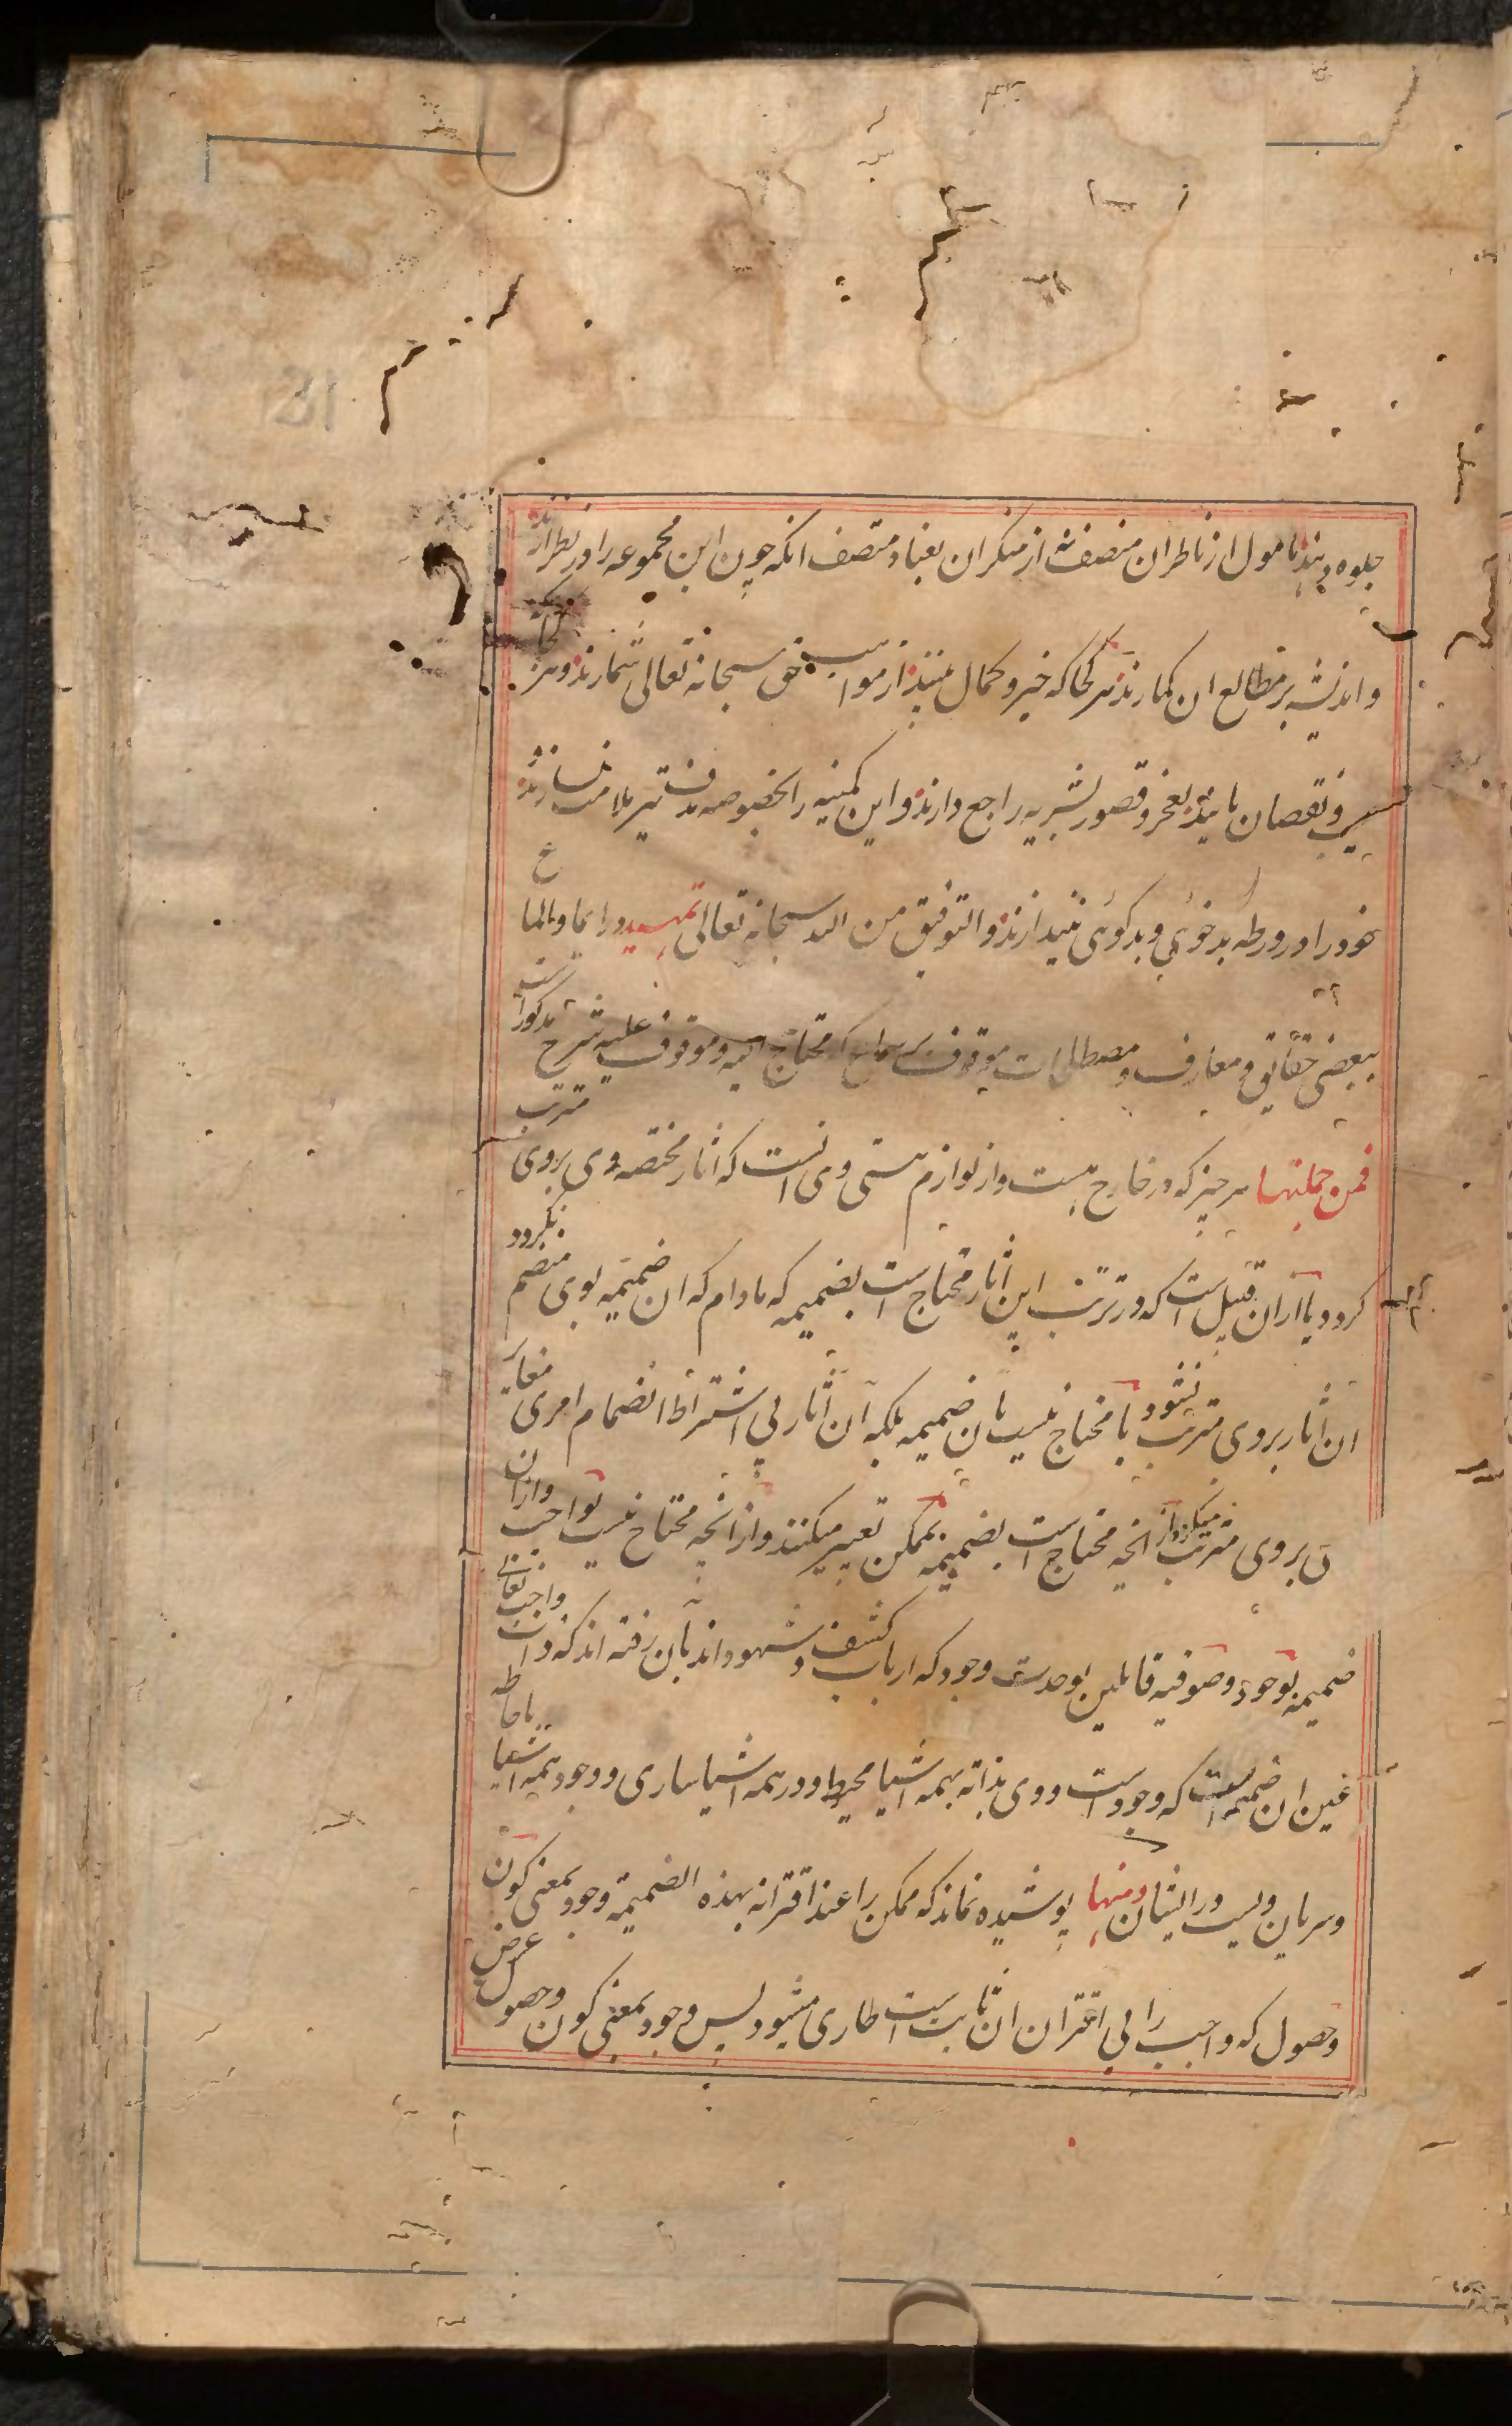 جلوه دهند مامول از ناظران منصف نه از منکران بعناد متصف انکه چون این مجموعه را در نظر ارند
واندیشه بر مطالع ان کمارند هر کجا که خیر و کمال بینند از مواهب حق سبحانه تعالی شمارند و هر کجا که
عیب و نقصان یابند بعجز و قصور بشریه راجع دارند و این کمینه را بخصوصه هدف تیر ملامت نسازند
خود را در ورطه بدخوئی و بدکوئی نیندازند و التوفیق من الله سبحانه تعالی تمهید در ایما و الماع
ببعضی حقائق و معارف و مصطلحات موقوف بر سماع که محتاج الیه و موقوف علیه شرح مذکور است
فمن جملتها هر چیز که در خارج هست و از لوازم هستی وی انست که اثار مختصه وی بروی مترتب
کردد یا از ان قبیل است که در ترتب این اثار محتاج است بضمیمه که مادام که ان ضمیمه بوی منضم نکردد
ان اثار بروی مترتب نشود یا محتاج نیست بان ضمیمه بلکه آن اثار بی اشتراط انضمام امری مغایر
ن بروی مترتب میکردد از انچه محتاج است بضمیمه بممکن تعبیر میکنند و از انچه محتاج نیست بواجب و از ان
ضمیمه بوجود و صوفیه قائلین بوحدت وجود که ارباب کشف و شهود اند بآن رفته اند که ذات واجب تعالی
عین ان ضمیمه است که وجود است و وی بذاته بهمه اشیا محیط و در همه اشیا ساری و وجود همه اشیا باحاطه
و سریان ویست در ایشان ومنها پوشیده نماند که ممکن را عند اقترانه بهذه الضمیمة وجود بمعنی کون
و حصول که واجب را بی اقتران ان ثابت است طاری میشود پس وجود بمعنی کون و حصول عرض